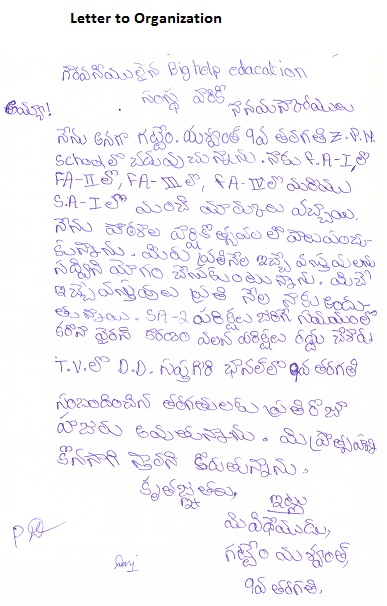 Letter to Organization
గౌరవనీయులైన Big help edacation
సంస్థ వారికి
అయ్యా! నానమస్కారములు
నేను అనగా గట్టెం. యశ్వంత్ 9వ తరగతి Z.P.H.
School లో చదువుచున్నాను. నాకు F.A-I, లో
FA-II లో, FA-III లో, F.A-IV లో మరియు
S.A-I లో మంచి మార్కులు వచ్చాయి.
నేను పాఠశాల వార్షికోత్సవం లో పాలుపంచు
కున్నాను. మీరు ప్రతినెల ఇచ్చే వస్తువులను
సద్వినియోగం చేసుకుంటున్నాను. మీరు
ఇచ్చే వస్తువులు ప్రతి నెల నాకు అందు
తున్నాయి. SA-2 పరీక్షలు జరిగే సమయంలో
కరోనా వైరస్ కారణం వలన పరీక్షలు రద్దు చేశారు
T.V. లో D.D. సప్తగిరి ఛానల్ లో 9వ తరగతి
సంబందించిన తరగతులకు ప్రతిరోజూ
హాజరు అవుతున్నాను. మీ ప్రోత్సాహం
కొనసాగాలని కోరుతున్నాను.
కృతజ్ఞతలు,
ఇట్లు
మీ విధేయుడు,
గట్టెం యశ్వంత్,
9వ తరగతి.